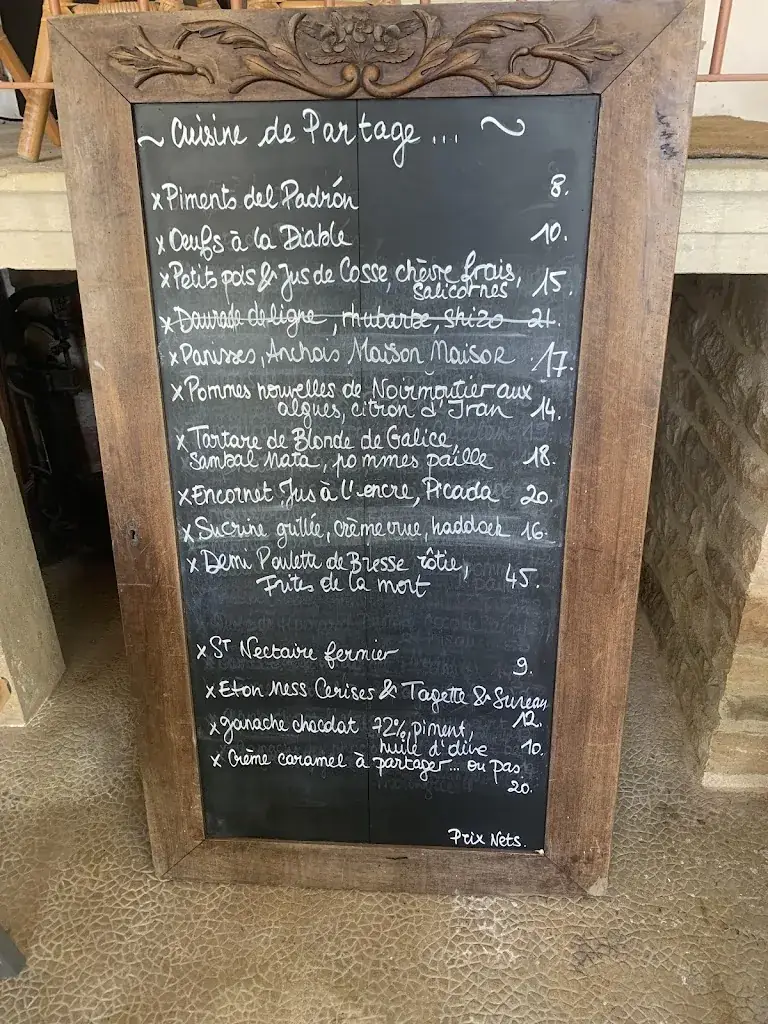 ~ Cuisine de Partage ... ~
x Piments del Padrón 8.
x Oeufs à la Diable 10.
x Petits pois & Jus de Cosse, chèvre frais, 15.
salicornes
x Daurade de ligne, rhubarbe, shizo 21.
x Panisses, Anchois Maison Maison 17.
x Pommes nouvelles de Noirmoutier aux
algues, citron d'Iran 14.
x Tartare de Blonde de Galice,
Sambal Mata, pommes paille 18.
x Encornet Jus à l'encre, Picada 20.
x Sucrine grillée, crème crue, haddock 16.
x Demi Poulette de Bresse rôtie,
Frites de la mort 45.
x St Nectaire fermier
9.
x Eton Mess Cerises & Tagette & Sureau
12.
x ganache chocolat 72%, piment,
huile d'olive 10.
x Crème caramel à partager... ou pas
20.
Prix Nets.